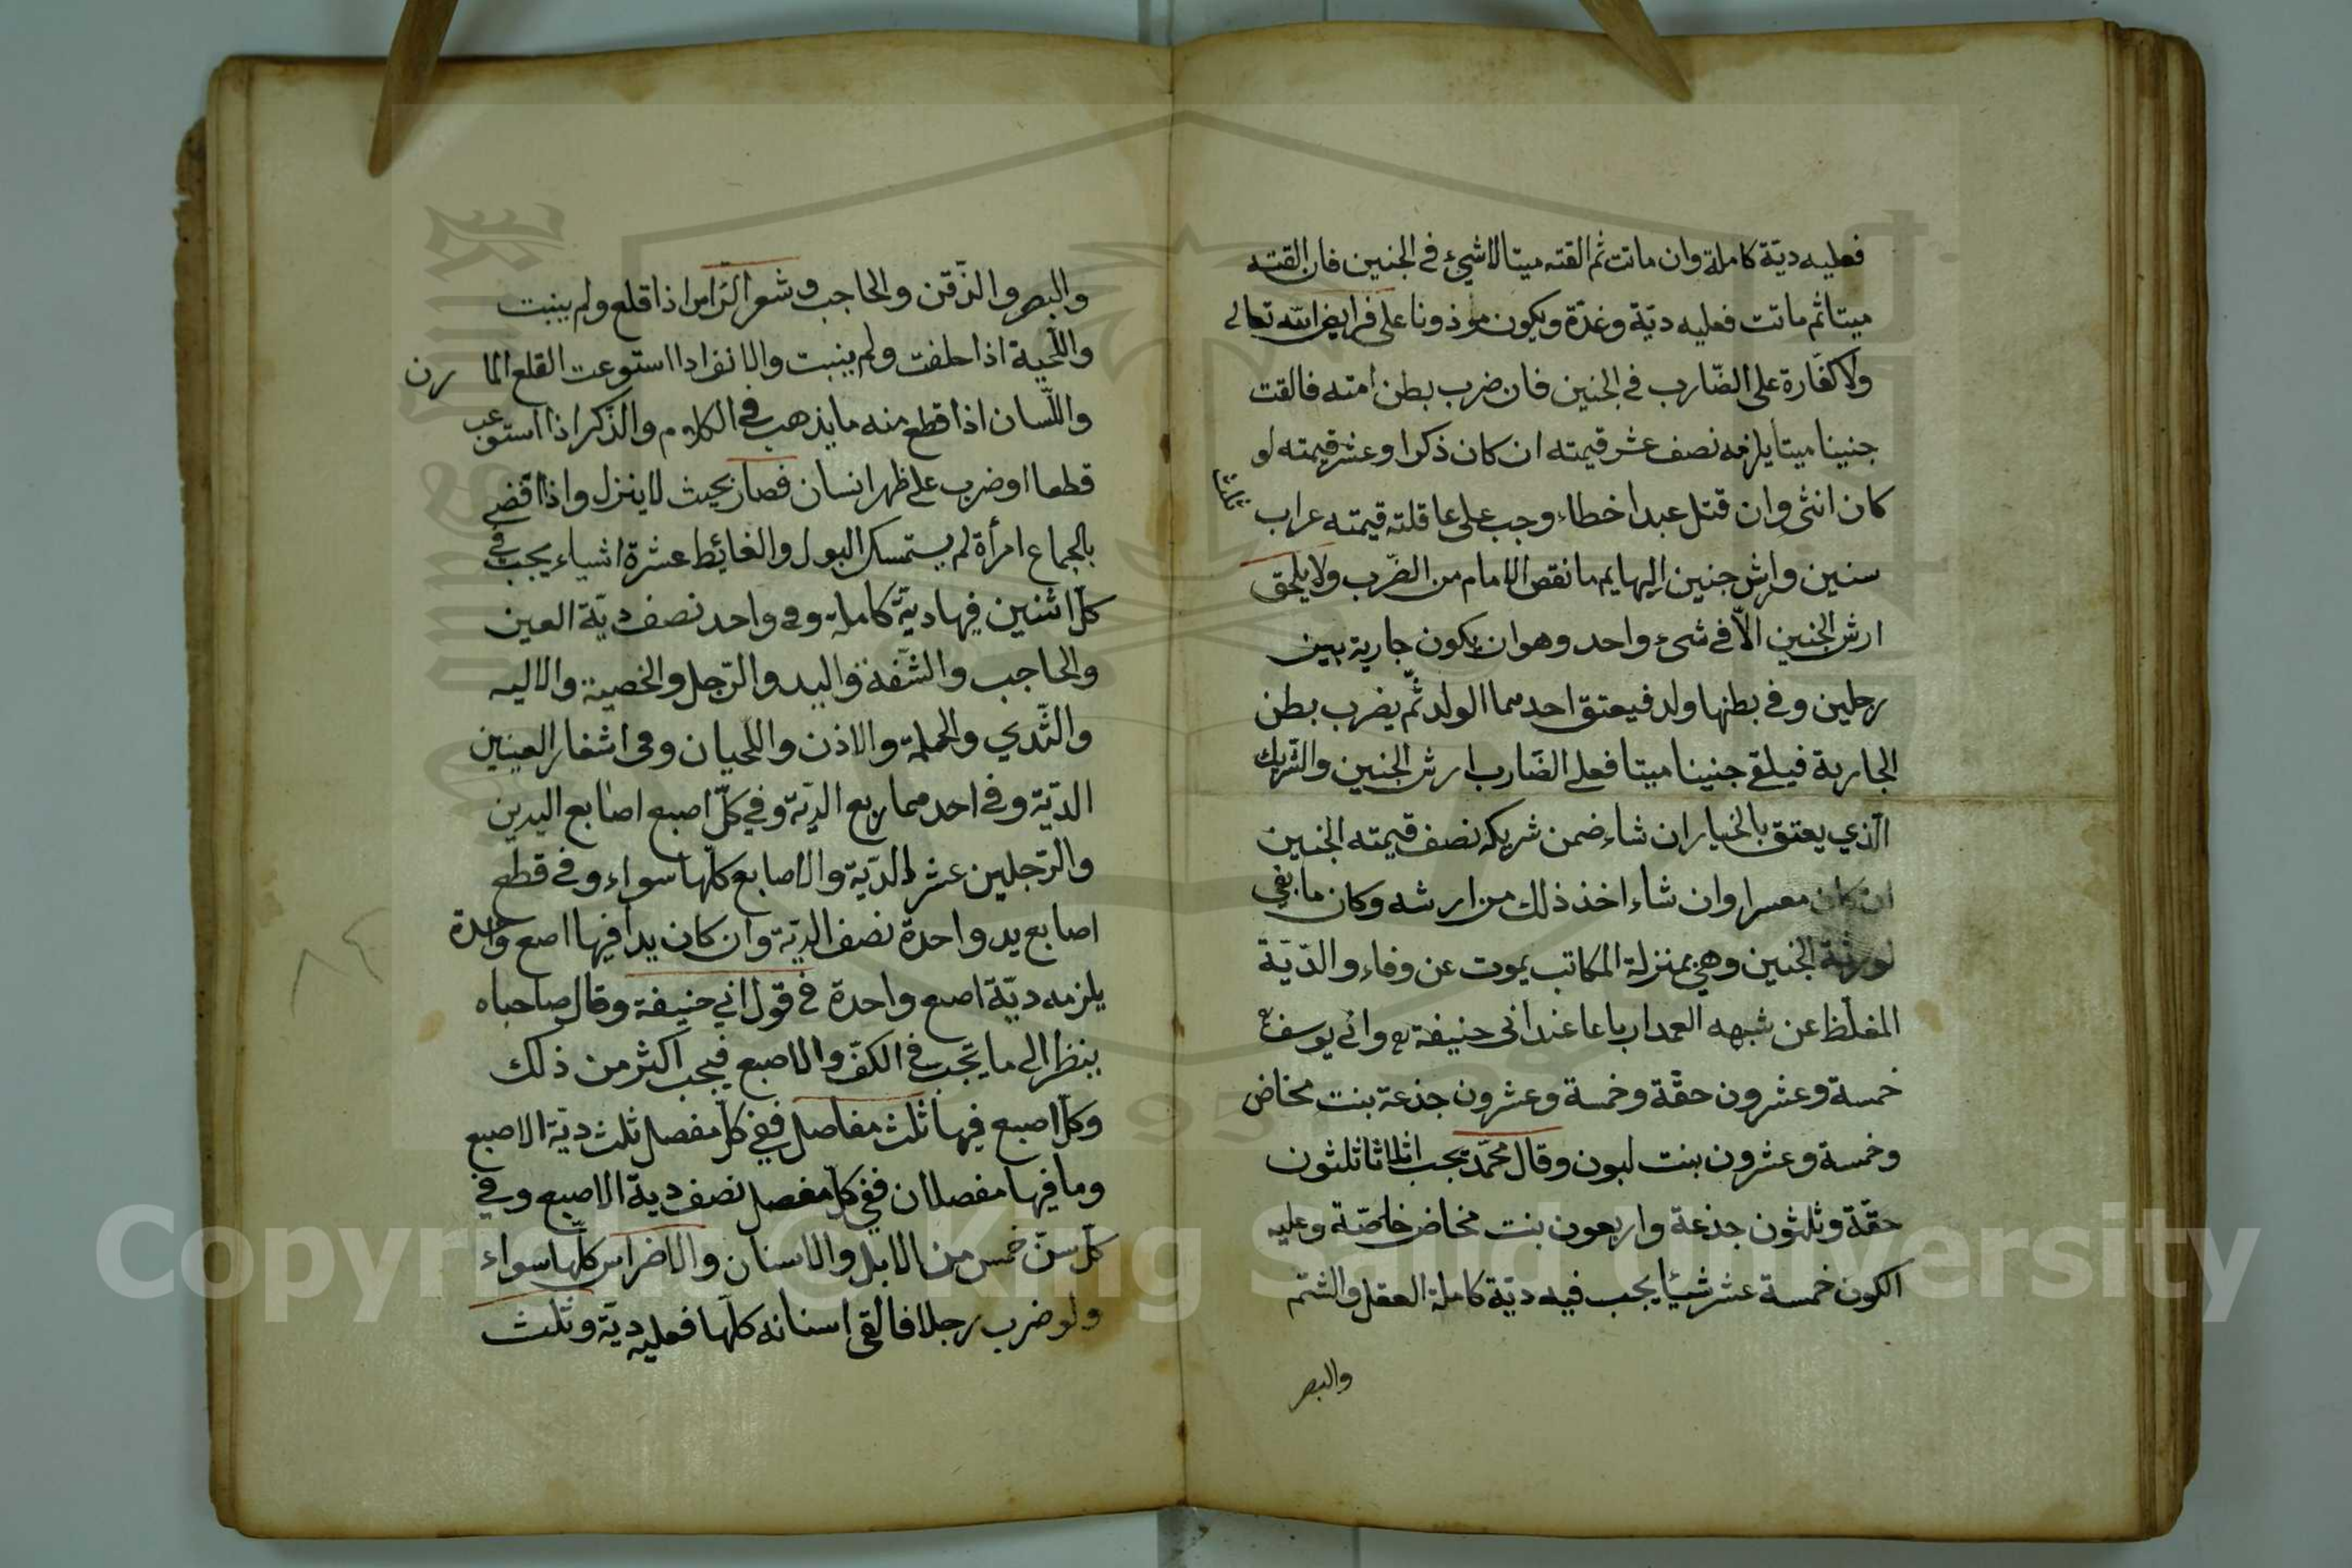 فعليه ديّة كاملة وان ماتت ثم القته ميتا لا شيء في الجنين فان القته
ميتا ثم ماتت فعليه ديّة وغرّة ويكون موذونا على فرايض الله تعالى
ولا كفّارة على الضّارب في الجنين فان ضرب بطن امته فالقت
جنينا ميتا يلزمه نصف عشر قيمته ان كان ذكرا وعشر قيمته لو
كان انثى وان قتل عبدا خطاء وجب على عاقلته قيمته عراب ثلث
سنين وارش جنين البهايم ما نقص الامام من الضّرب ولا يلحق
ارش الجنين الّا في شيء واحد وهو ان يكون جارية بين
رجلين وفي بطنها ولد فيعتق احدهما الولد ثمّ يضرب بطن
الجارية فيلقى جنينا ميتا فعلى الضّارب ارش الجنين والشّريك
الّذي يعتق بالخيار ان شاء ضمن شريكه نصف قيمته الجنين
ان كان معسرا وان شاء اخذ ذلك من ارشه وكان ما بقى
لورثة الجنين وهي بمنزلة المكاتب يموت عن وفاء والدّيّة
المغلّظ عن شبهه العمد ارباعا عند ابى حنيفة وابى يوسف
خمسة وعشرون حقّة وخمسة وعشرون جذعة بنت مخاض
وخمسة وعشرون بنت لبون وقال محمّد يجب اثلاثا ثلثون
حقّة وثلثون جذعة واربعون بنت مخاض خاصّة وعليه
الكون خمسة عشر شيئا يجب فيه ديّة كاملة العقل والشتم
والبصر
والبصر والذّقن والحاجب وشعر الرّاس اذا قلع ولم ينبت
واللّحية اذا حلفت ولم ينبت والانف اذا استوعت القلع المارن
واللّسان اذا قطع منه ما يذهب في الكلام والذّكر اذا استوعب
قطعا او ضرب على ظهر انسان فصار بحيث لا ينزل واذا قضى
بالجماع امرأة لم يستمسك البول والغائط عشرة اشياء يجب في
كلّ اثنين فيها ديّة كاملة وفى واحد نصف ديّة العين
والحاجب والشّفة واليد والرّجل والخصية والاليه
والثّدي والحملة والاذن واللّحيان وفى اشفار العينين
الديّة وفي احدهما ربع الديّة وفي كلّ اصبع اصابع اليدين
والرّجلين عشر الدّيّة والاصابع كلّها سواء وفي قطع
اصابع يد واحدة نصف الديّة وان كان يدا فيها اصع واحدة
يلزمه ديّة اصبع واحدة في قول ابي حنيفة وقال صاحباه
ينظر الى ما يجب في الكفّ والاصبع فيجب اكثر من ذلك
وكلّ اصبع فيها ثلث مفاصل ففي كلّ مفصل ثلث ديّة الاصبع
وما فيها مفصلان ففي كلّ مفصل نصف ديّة الاصبع وفي
كلّ سنّ خمس من الابل والاسنان والاضراس كلّها سواء
ولو ضرب رجلا فالقى اسنانه كلّها فعليه ديّة وثلث
Copyright © King Saud University